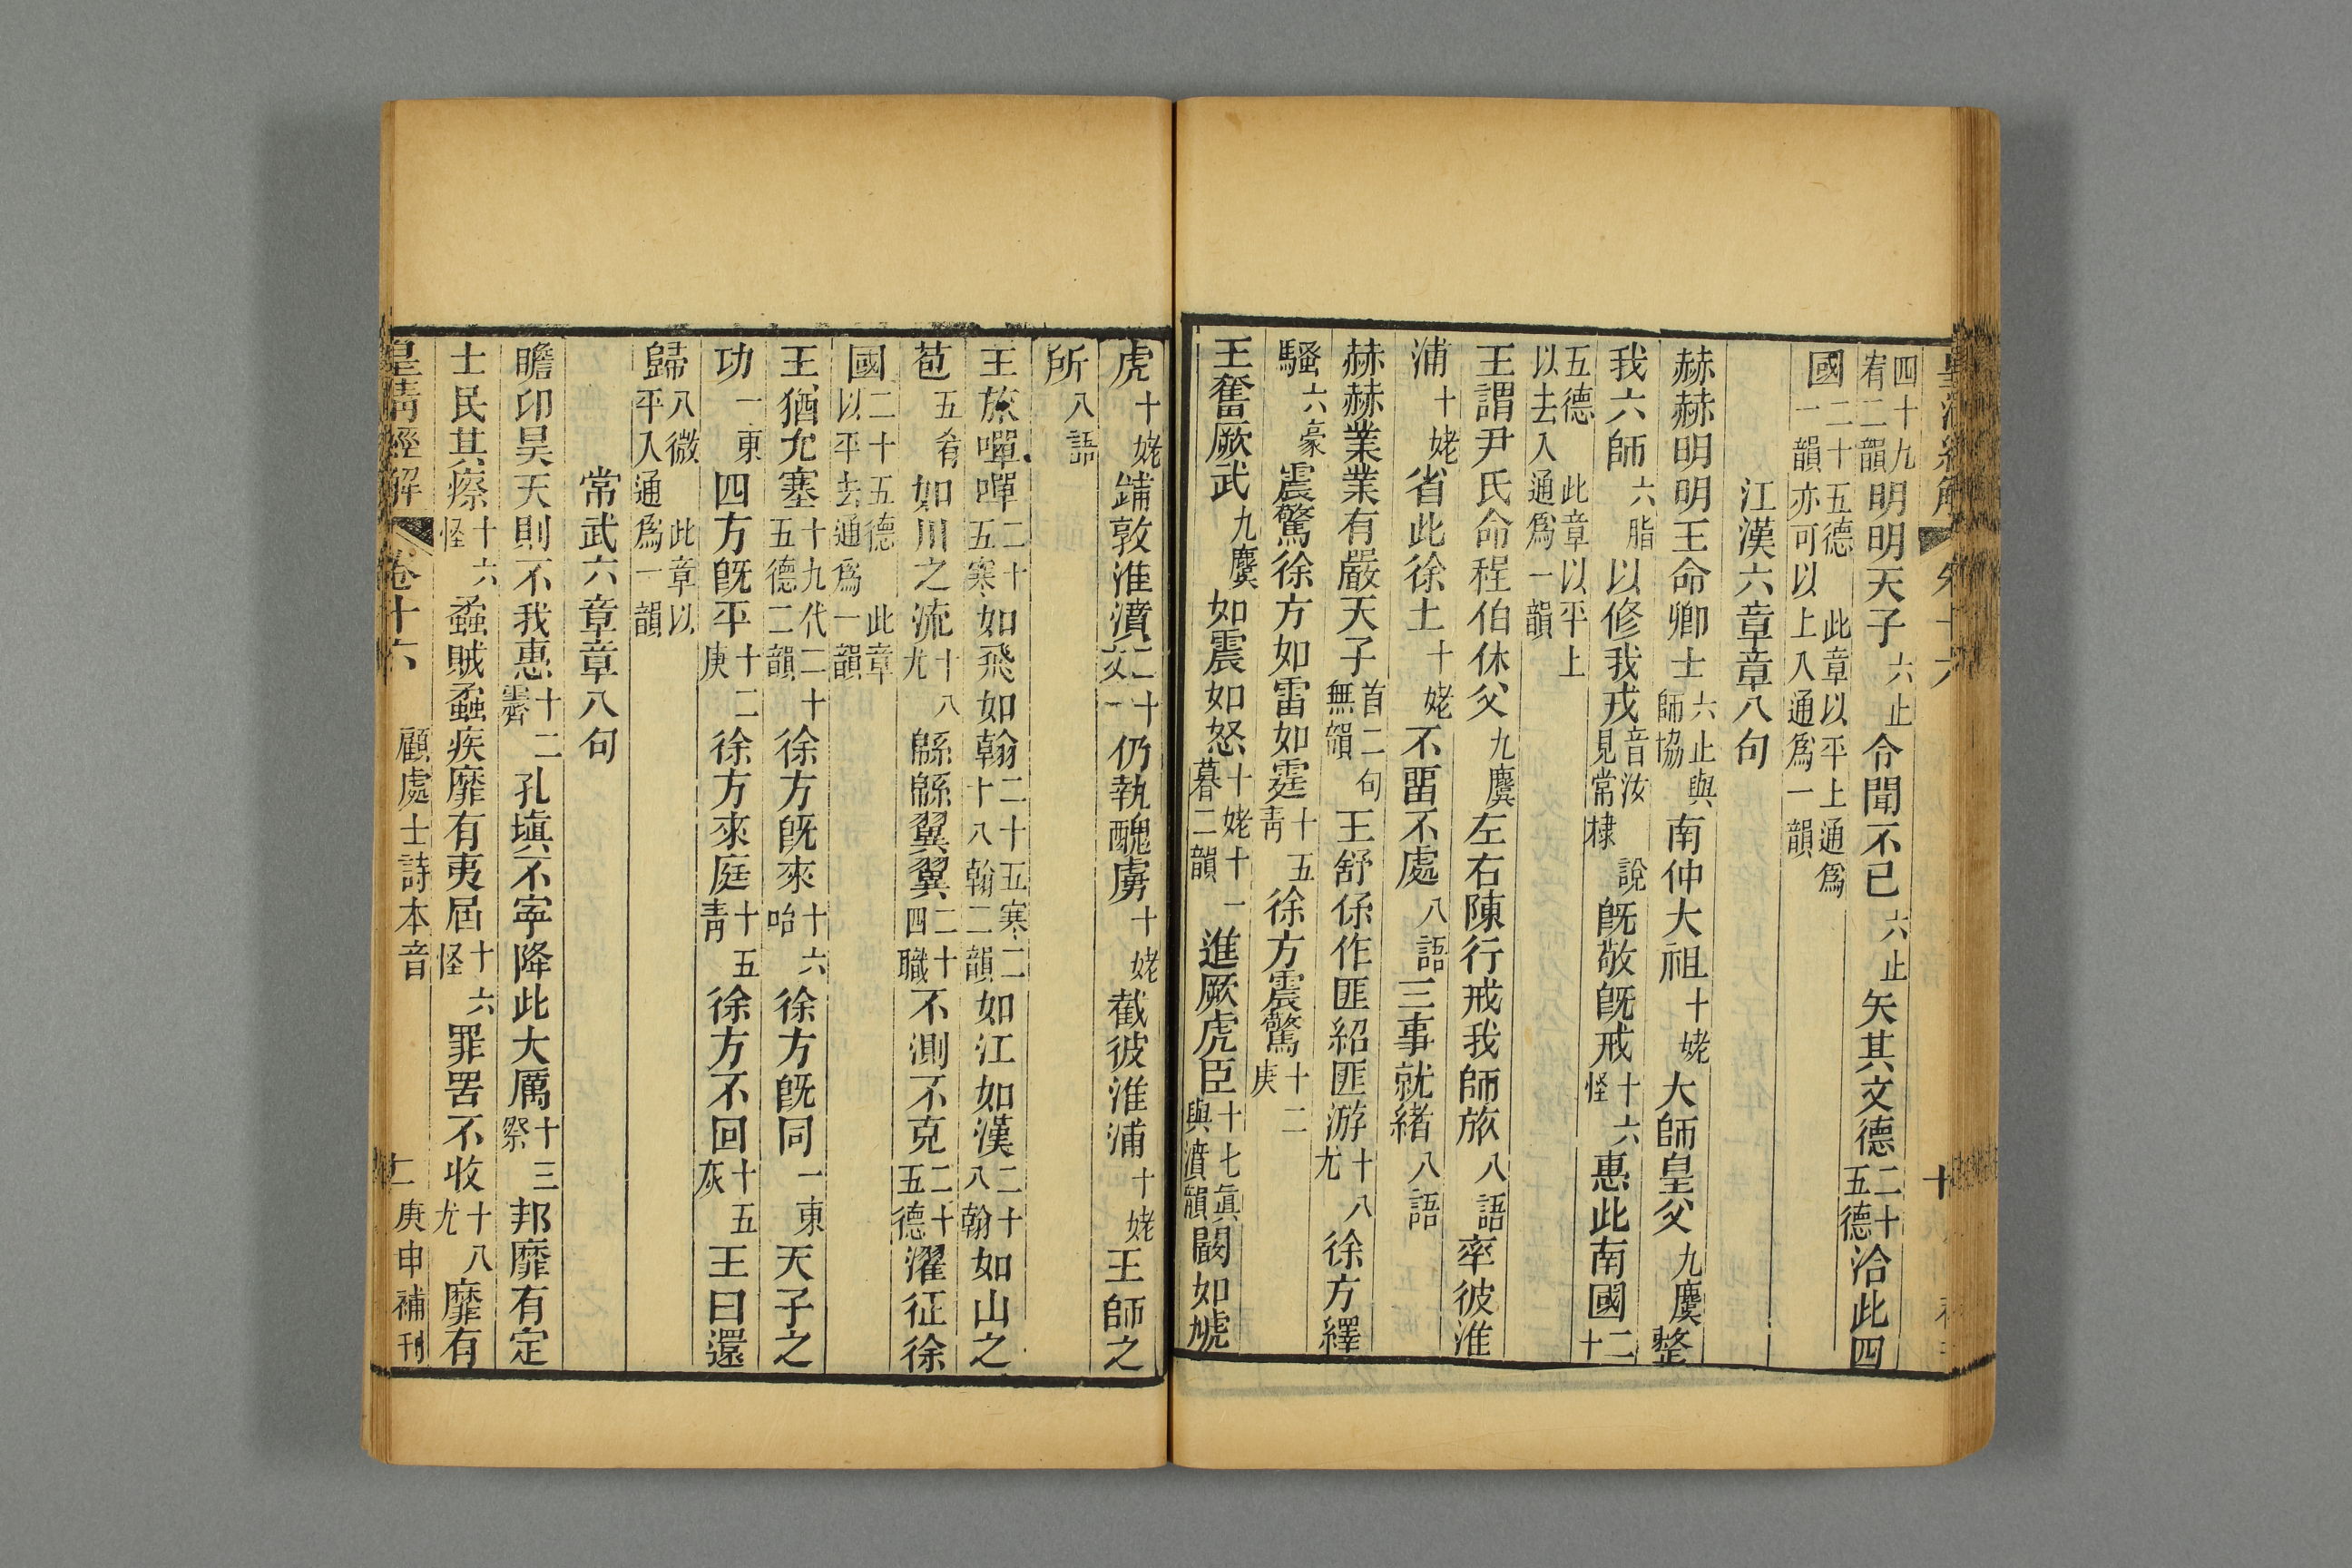 四十九宥二韻明明天子六止令聞不已六止矢其文德二十五德洽此四
國二十五德一韻亦可以上入通爲一韻此章以平上通爲
江漢六章章八句
赫赫明明王命卿士六止與師協南仲大祖十姥大師皇父九麌整
我六師六脂以修我戎音汝見常棣說旣敬旣戒十六怪惠此南國二十
五德此章以平上以去入通爲一韻
王謂尹氏命程伯休父九麌左右陳行戒我師旅八語率彼淮
浦十姥省此徐土十姥不畱不處八語三事就緖八語
赫赫業業有嚴天子首二句無韻王舒保作匪紹匪游十八尤徐方繹
騷六豪震驚徐方如雷如霆十五靑徐方震驚十二庚
王奮厥武九麌如震如怒十姥十一暮二韻進厥虎臣十七眞與濆韻闞如虓
虎十姥鋪敦淮濆二十文仍執醜虜十姥截彼淮浦十姥王師之
所八語
王旅嘽嘽二十五寒如飛如翰二十五寒二十八翰二韻如江如漢二十八翰如山之
苞五肴如川之流十八尤緜緜翼翼二十四職不測不克二十五德濯征徐
國二十五德此章以平去通爲一韻
王猶允塞十九代二十五德二韻徐方旣來十六咍徐方旣同一東天子之
功一東四方旣平十二庚徐方來庭十五靑徐方不回十五灰王曰還
歸八微此章以平入通爲一韻
常武六章章八句
瞻卬昊天則不我惠十二霽孔塡不寧降此大厲十三祭邦靡有定
士民其瘵十六怪蟊賊蟊疾靡有夷屆十六怪罪罟不收十八尤靡有
皇淸經解 卷十六 顧處士詩本音 庚申補刊